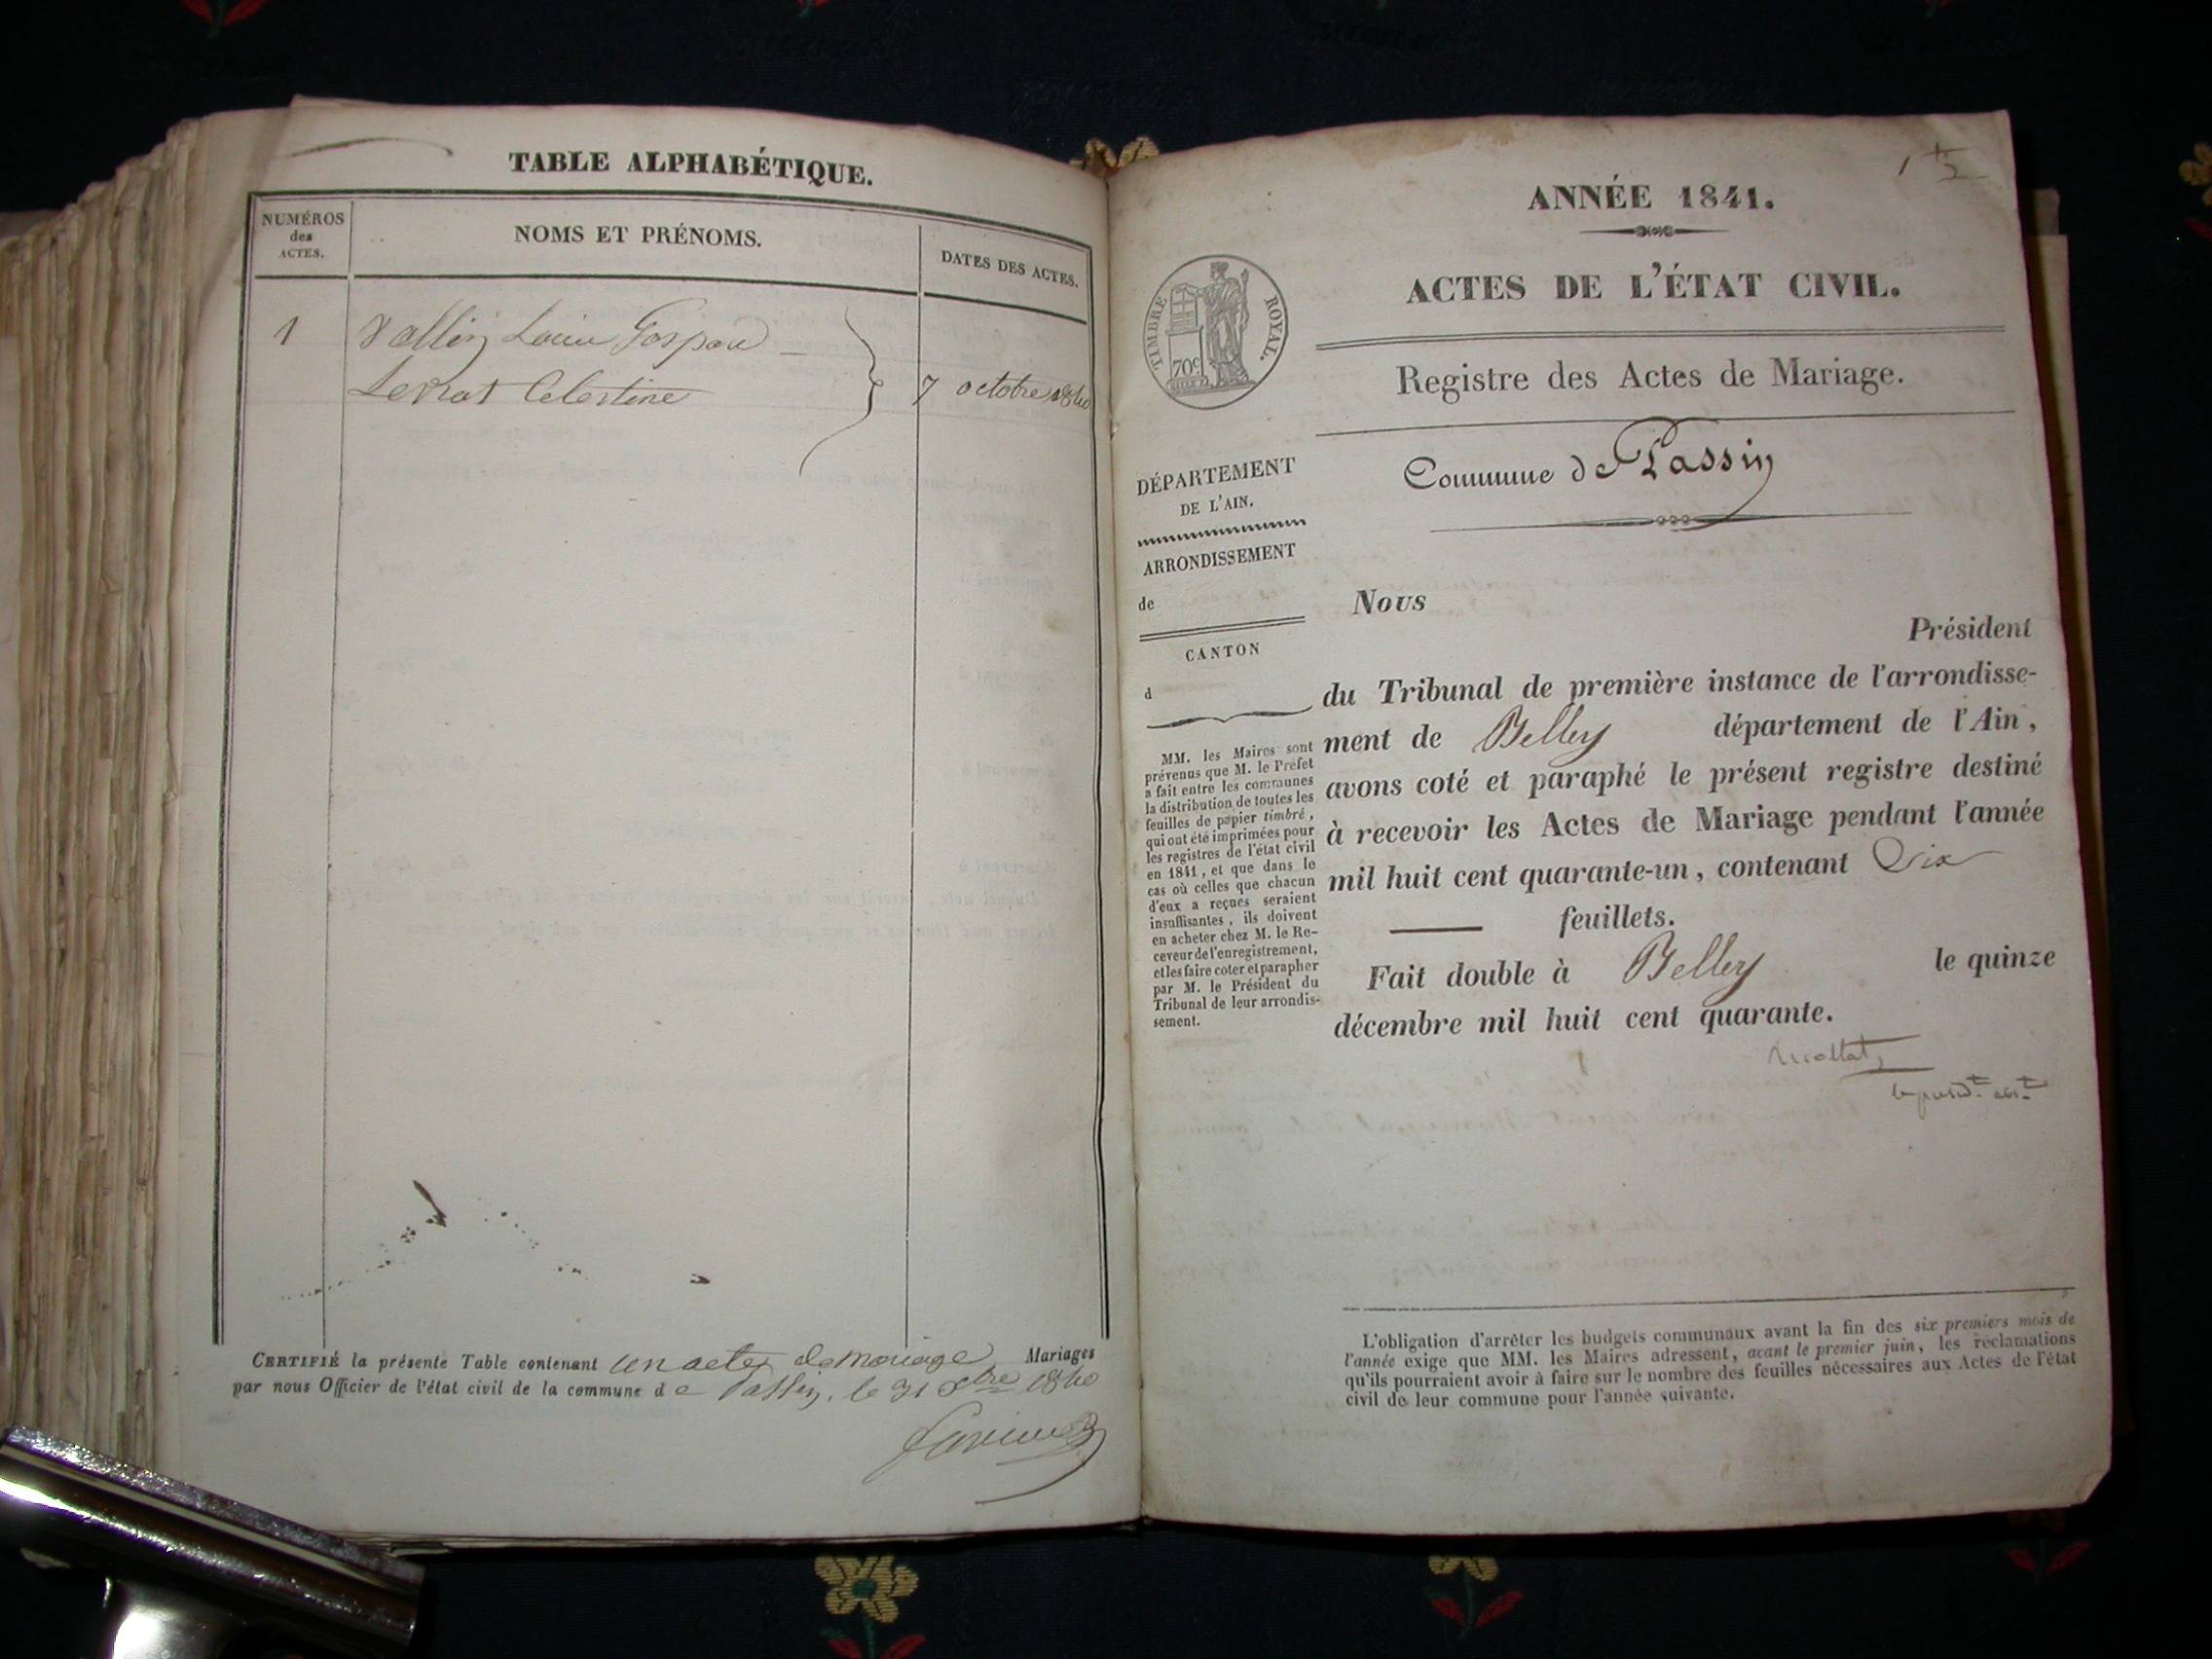 TABLE ALPHABÉTIQUE.
NUMÉROS
des
ACTES.
NOMS ET PRÉNOMS.
DATES DES ACTES.
1
Vallin Louis Gaspard
Lerrat Celestine
7 octobre 1840
CERTIFIÉ la présente Table contenant un actes de mariage Mariages
par nous Officier de l'état civil de la commune de Passin, le 31 Xbre 1840
1
ANNÉE 1841.
ACTES DE L'ÉTAT CIVIL.
TIMBRE ROYAL.
70c
Registre des Actes de Mariage.
Commune de Passin
DÉPARTEMENT
DE L'AIN.
ARRONDISSEMENT
de
CANTON
d
MM. les Maires sont
prévenus que M. le Préfet
a fait entre les communes
la distribution de toutes les
feuilles de papier timbré,
qui ont été imprimées pour
les registres de l'état civil
en 1841, et que dans le
cas où celles que chacun
d'eux a reçues seraient
insuffisantes, ils doivent
en acheter chez M. le Re-
ceveur de l'enregistrement,
et les faire coter et parapher
par M. le Président du
Tribunal de leur arrondis-
sement.
Nous
Président
du Tribunal de première instance de l'arrondisse-
ment de Belley département de l'Ain,
avons coté et paraphé le présent registre destiné
à recevoir les Actes de Mariage pendant l'année
mil huit cent quarante-un, contenant Six
feuillets.
Fait double à Belley le quinze
décembre mil huit cent quarante.
L'obligation d'arrêter les budgets communaux avant la fin des six premiers mois de
l'année exige que MM. les Maires adressent, avant le premier juin, les réclamations
qu'ils pourraient avoir à faire sur le nombre des feuilles nécessaires aux Actes de l'état
civil de leur commune pour l'année suivante.